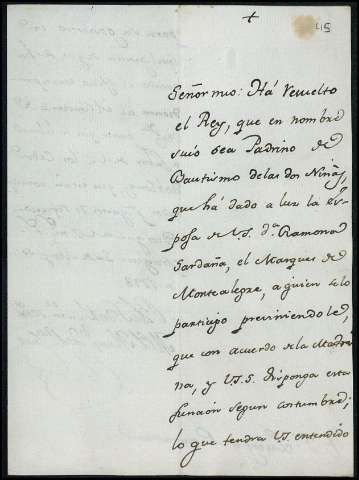 +
45
Señor mio: Há resuelto
el Rey, que en nombre
suio sea Padrino de
Bautismo de las dos Niñas,
que há dado a luz la es
posa de V.S. d.ª Ramona
Sardaña, el Marques de
Montealegre, a quien se lo
participo previniendole,
que con acuerdo de la Madri
na, y V.S. disponga esta
funcion segun costumbre;
lo que tendra VS entendido